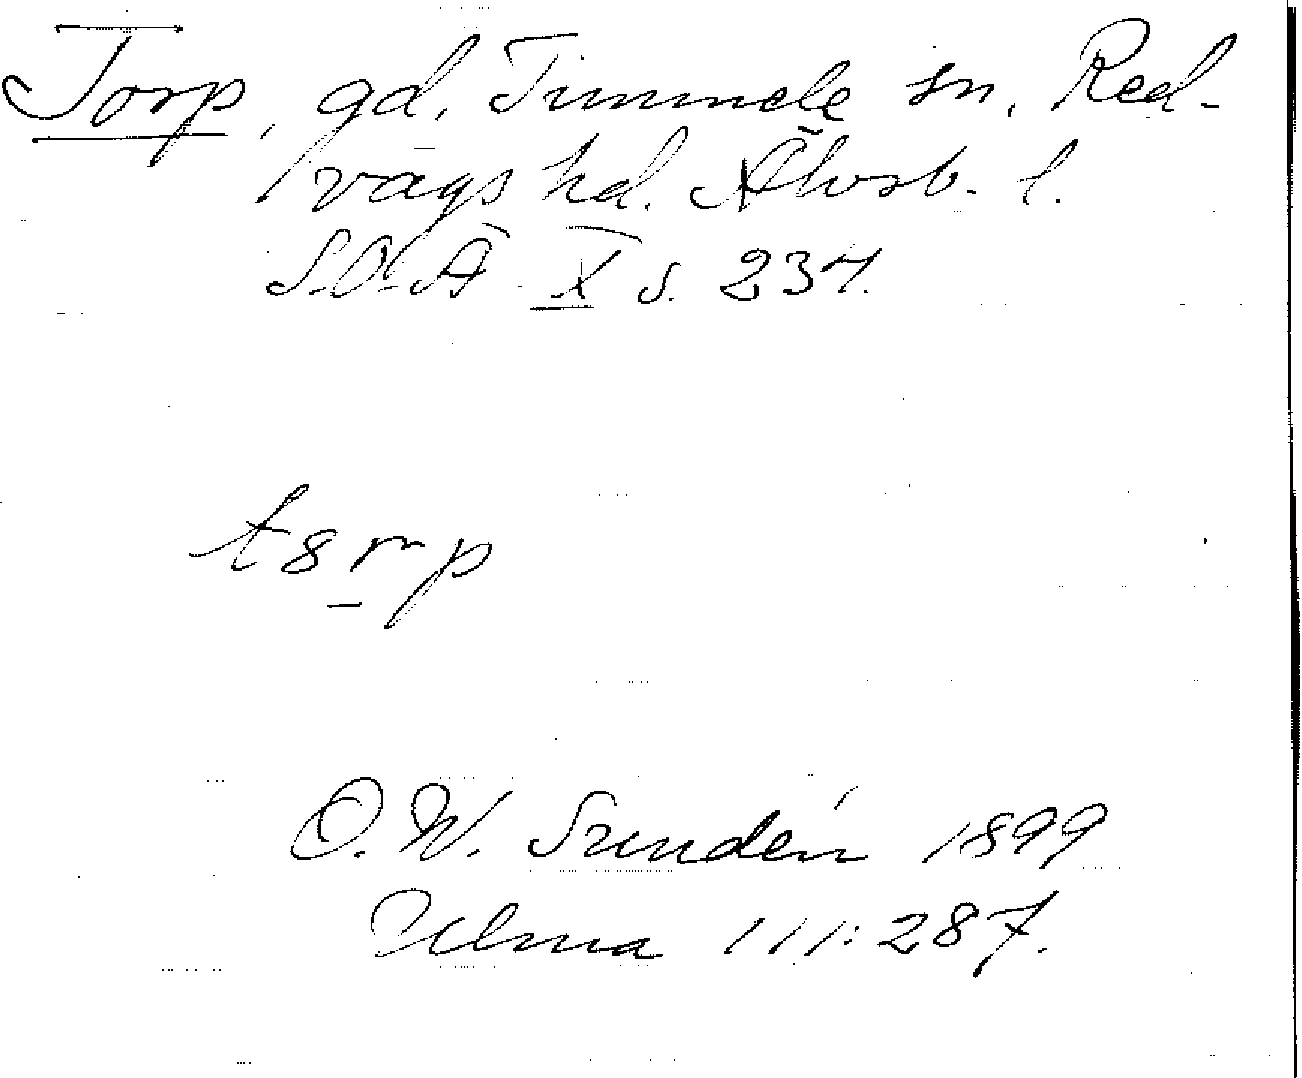 Torp, gd, Timmele sn, Red-
vägs hd. Älvsb. l.
S.O.Ä X s. 234.
t8rp
O. W. Sundén 1899
Ulma 111:287.